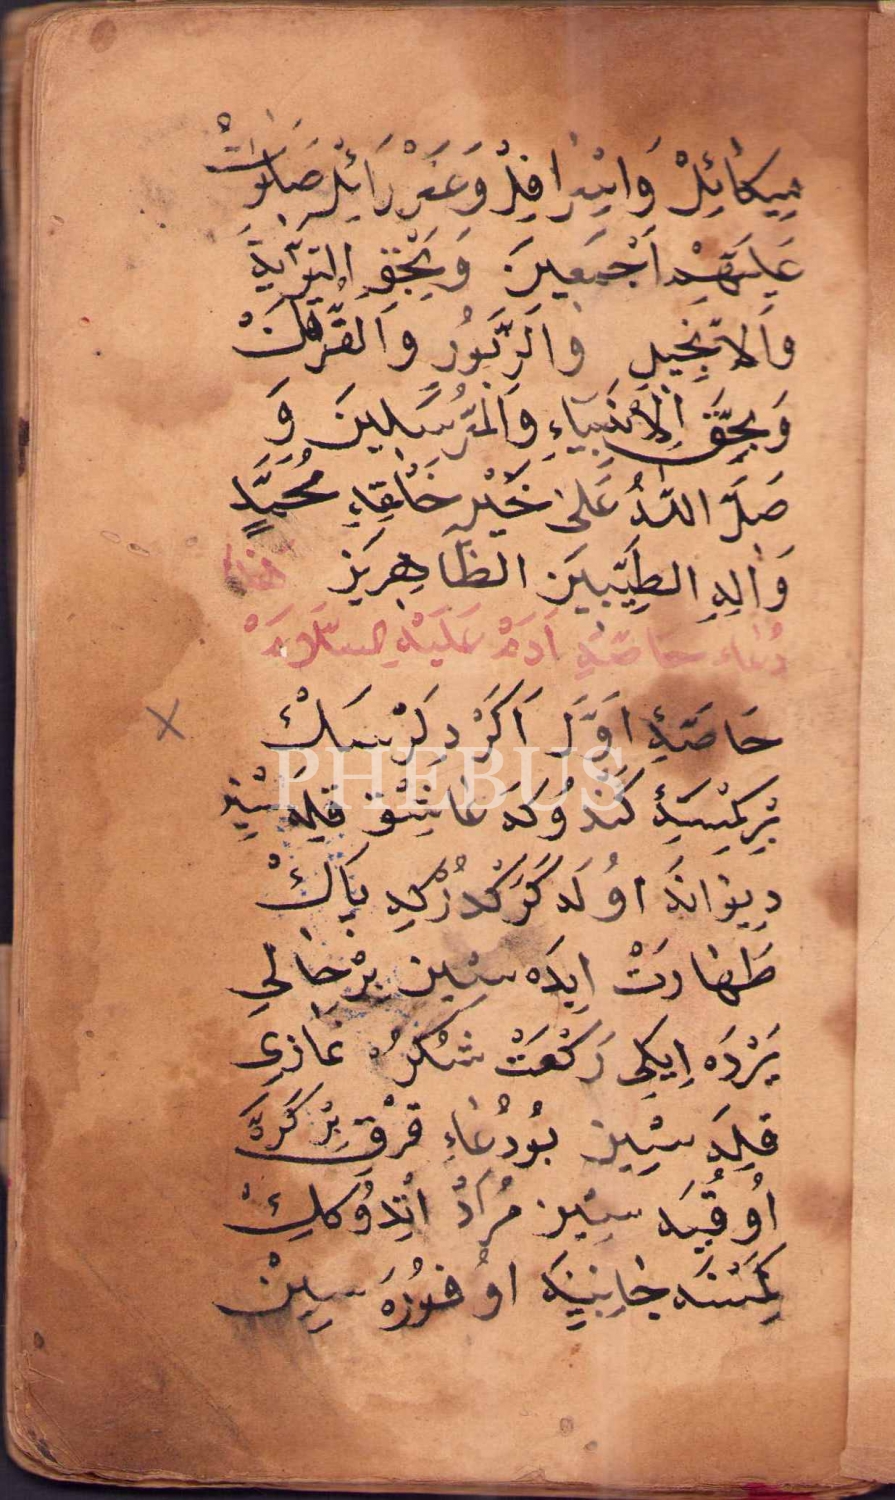 مِيكَائِلْ وَاسْرَافِلْ وَعَزْرَائِلْ صَلَوَاتْ
عَلَيْهِمْ اَجْمَعِينَ وَبِحَقِّ التَّوْرَيةِ
وَالاِنْجِيلِ وَالزَّبُورِ وَالْفُرْقَانْ
وَبِحَقِّ الْاَنْبِيَاءِ وَالْمُرْسَلِينَ وَ
صَلَّ اللّٰهُ عَلٰى خَيْرِ خَلْقِهِ مُحَمَّدٍ
وَاٰلِهِ الطَّيِّبِينَ الطَّاهِرِينْ
دُعَاء خاصّهٔ اٰدَمْ عَلَيْهِ السَّلَامْ
خَاصَّهٔ اَوَّلْ اَكَرْ دِلَرْسَكْ
بِرْ كِمْسَهٔ كَنْدُوكَه عَاشِقْ قِلَه سِنْ
دِيوَانَه اُولَه كَرَكْدُرْكِه پَاكْ
طَهَارَتْ اِيدَه سِينْ بِرْ خَالِي
يَرْدَه اِيكِي رَكْعَتْ شُكُرْ نَمَازِي
قِلَه سِينْ بُو دُعَاءِ قِرْقْ بِرْ كَرَّه
اُوقُيَه سِينْ مُرَادْ اِتْدُوكِكْ
كِمْسَنَه جَانِبِنَه اُوفُورَه سِينْ
PHEBUS